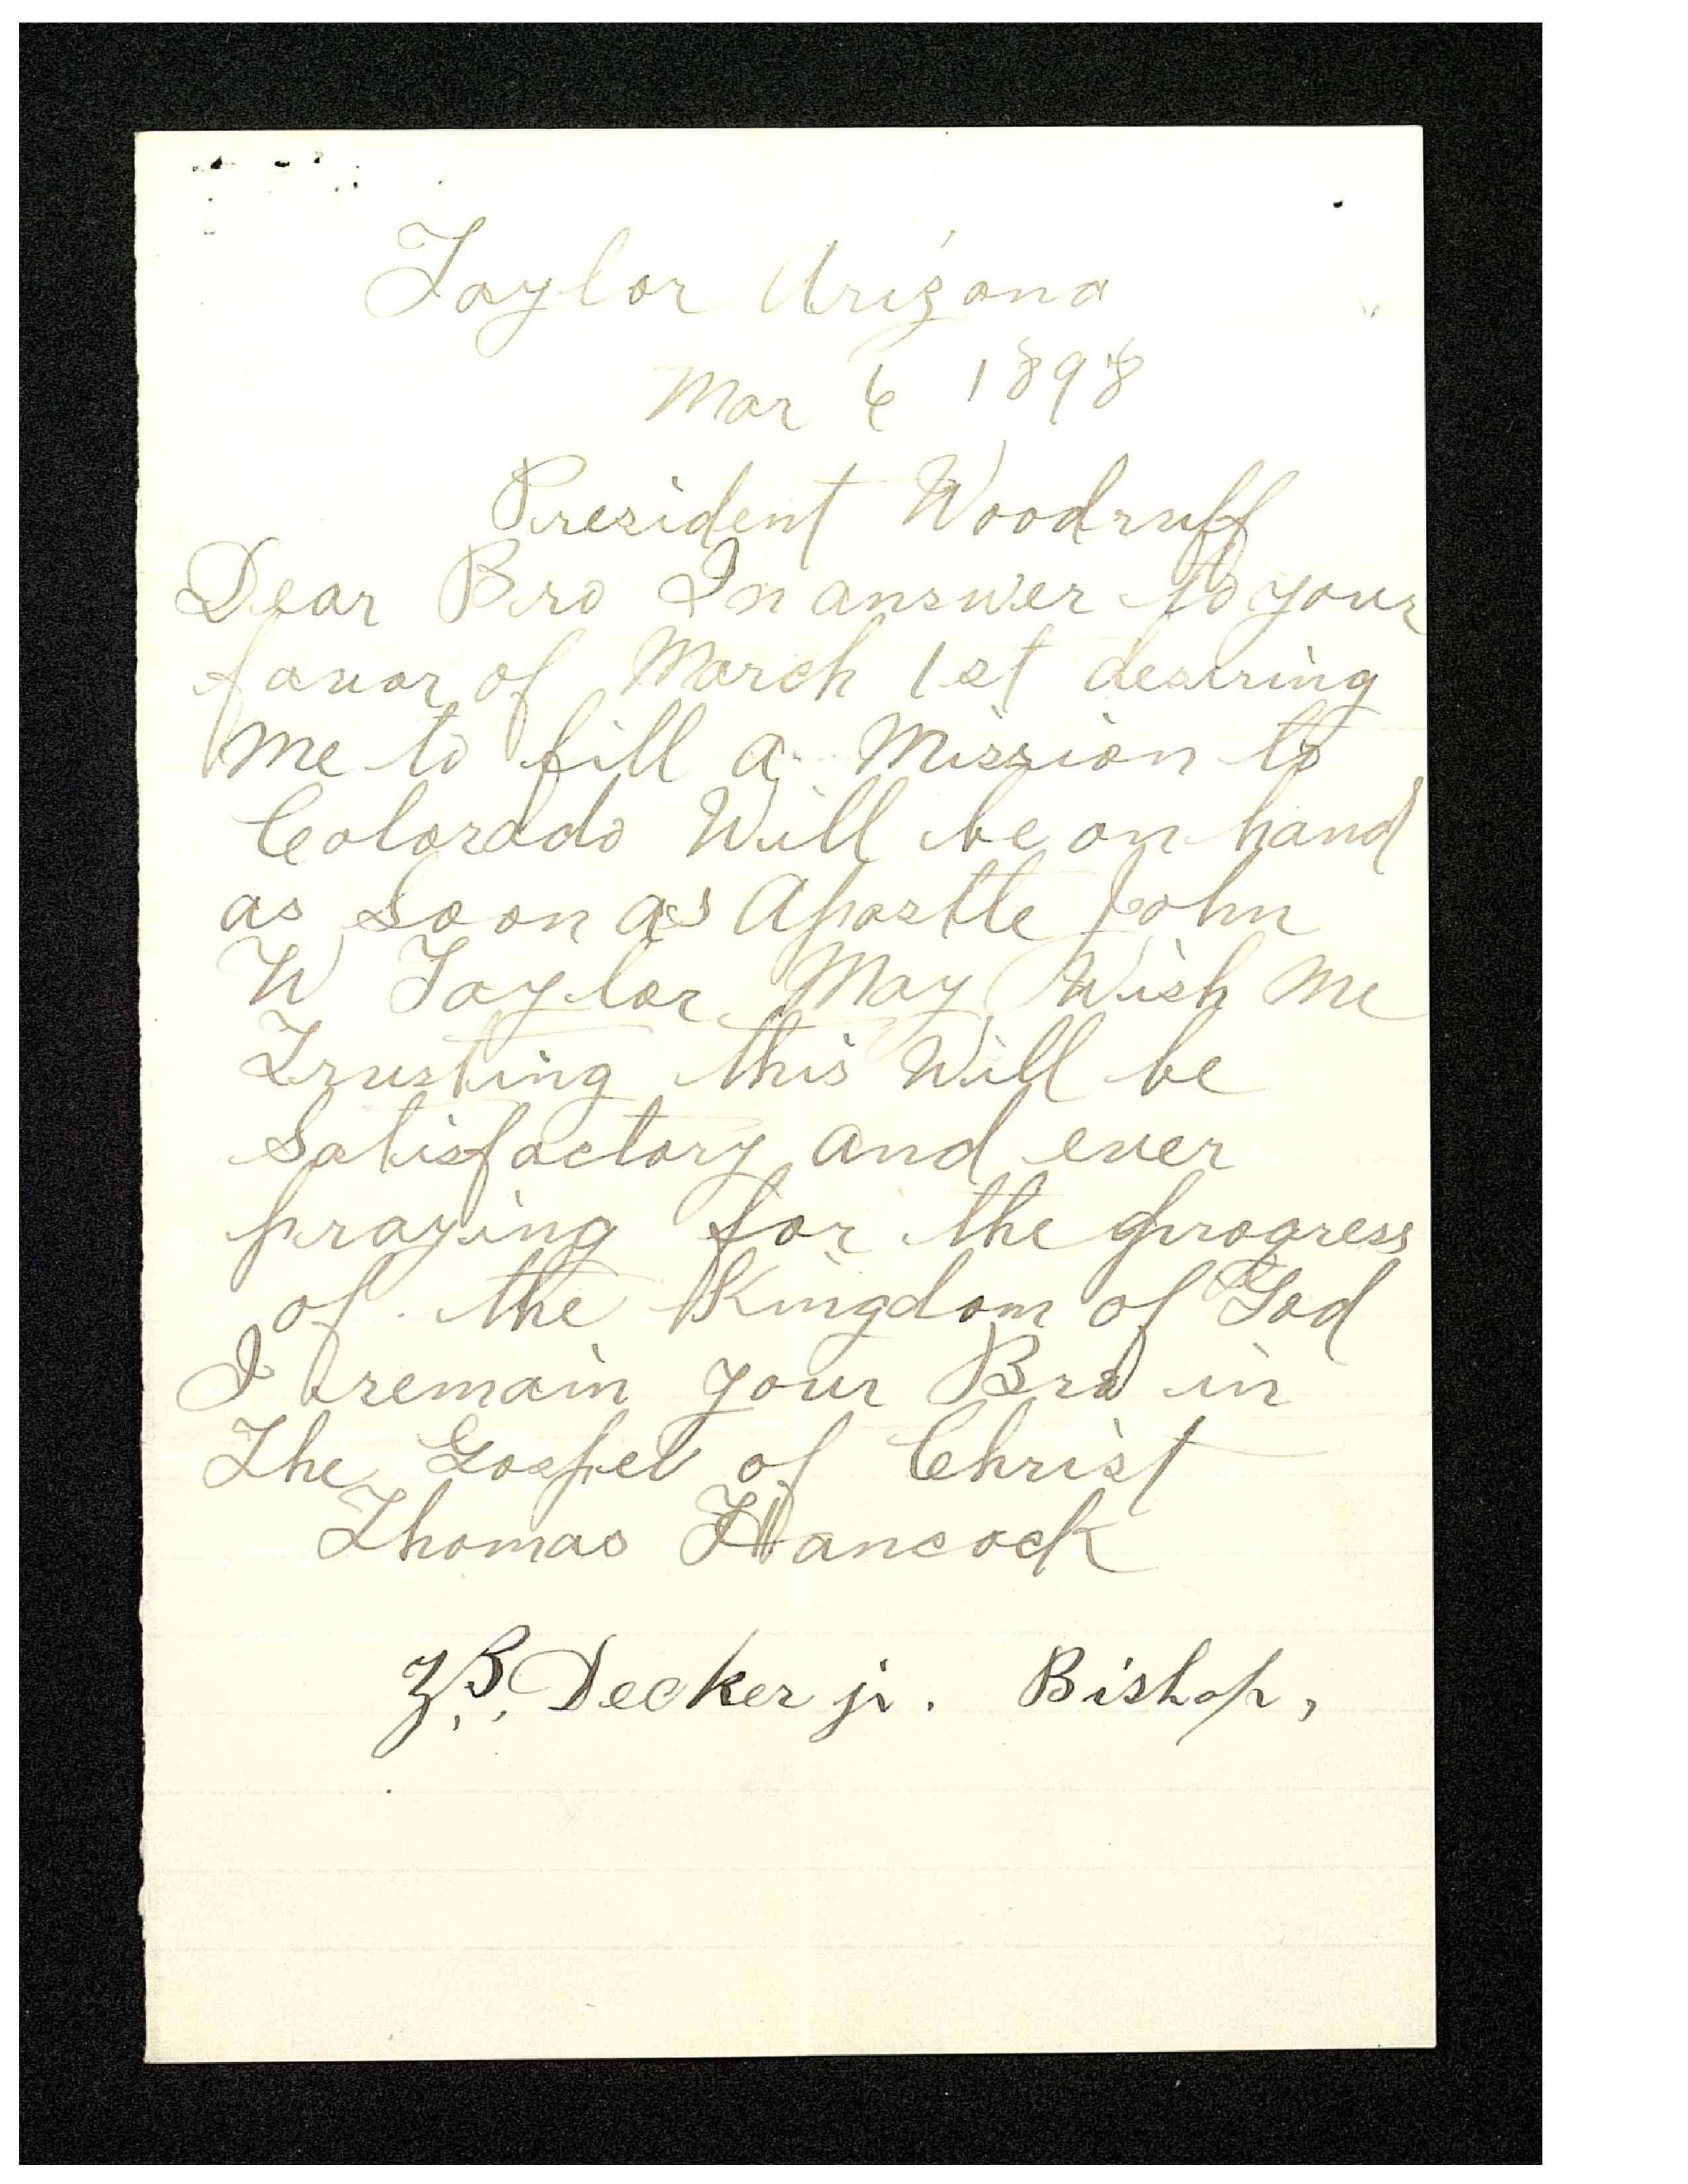 Taylor Arizona
Mar 6 1898
President Woodruff
Dear Bro In answer to your
favor of March 1st desiring
me to fill a Mission to
Colorado Will be on hand
as Soon as Apostle John
W Taylor May Wish Me
Trusting this Will be
Satisfactory and ever
praying for the progress
of the Kingdom of God
I remain your Bro in
The Gospel of Christ
Thomas Hancock
Z. B. Decker jr. Bishop,